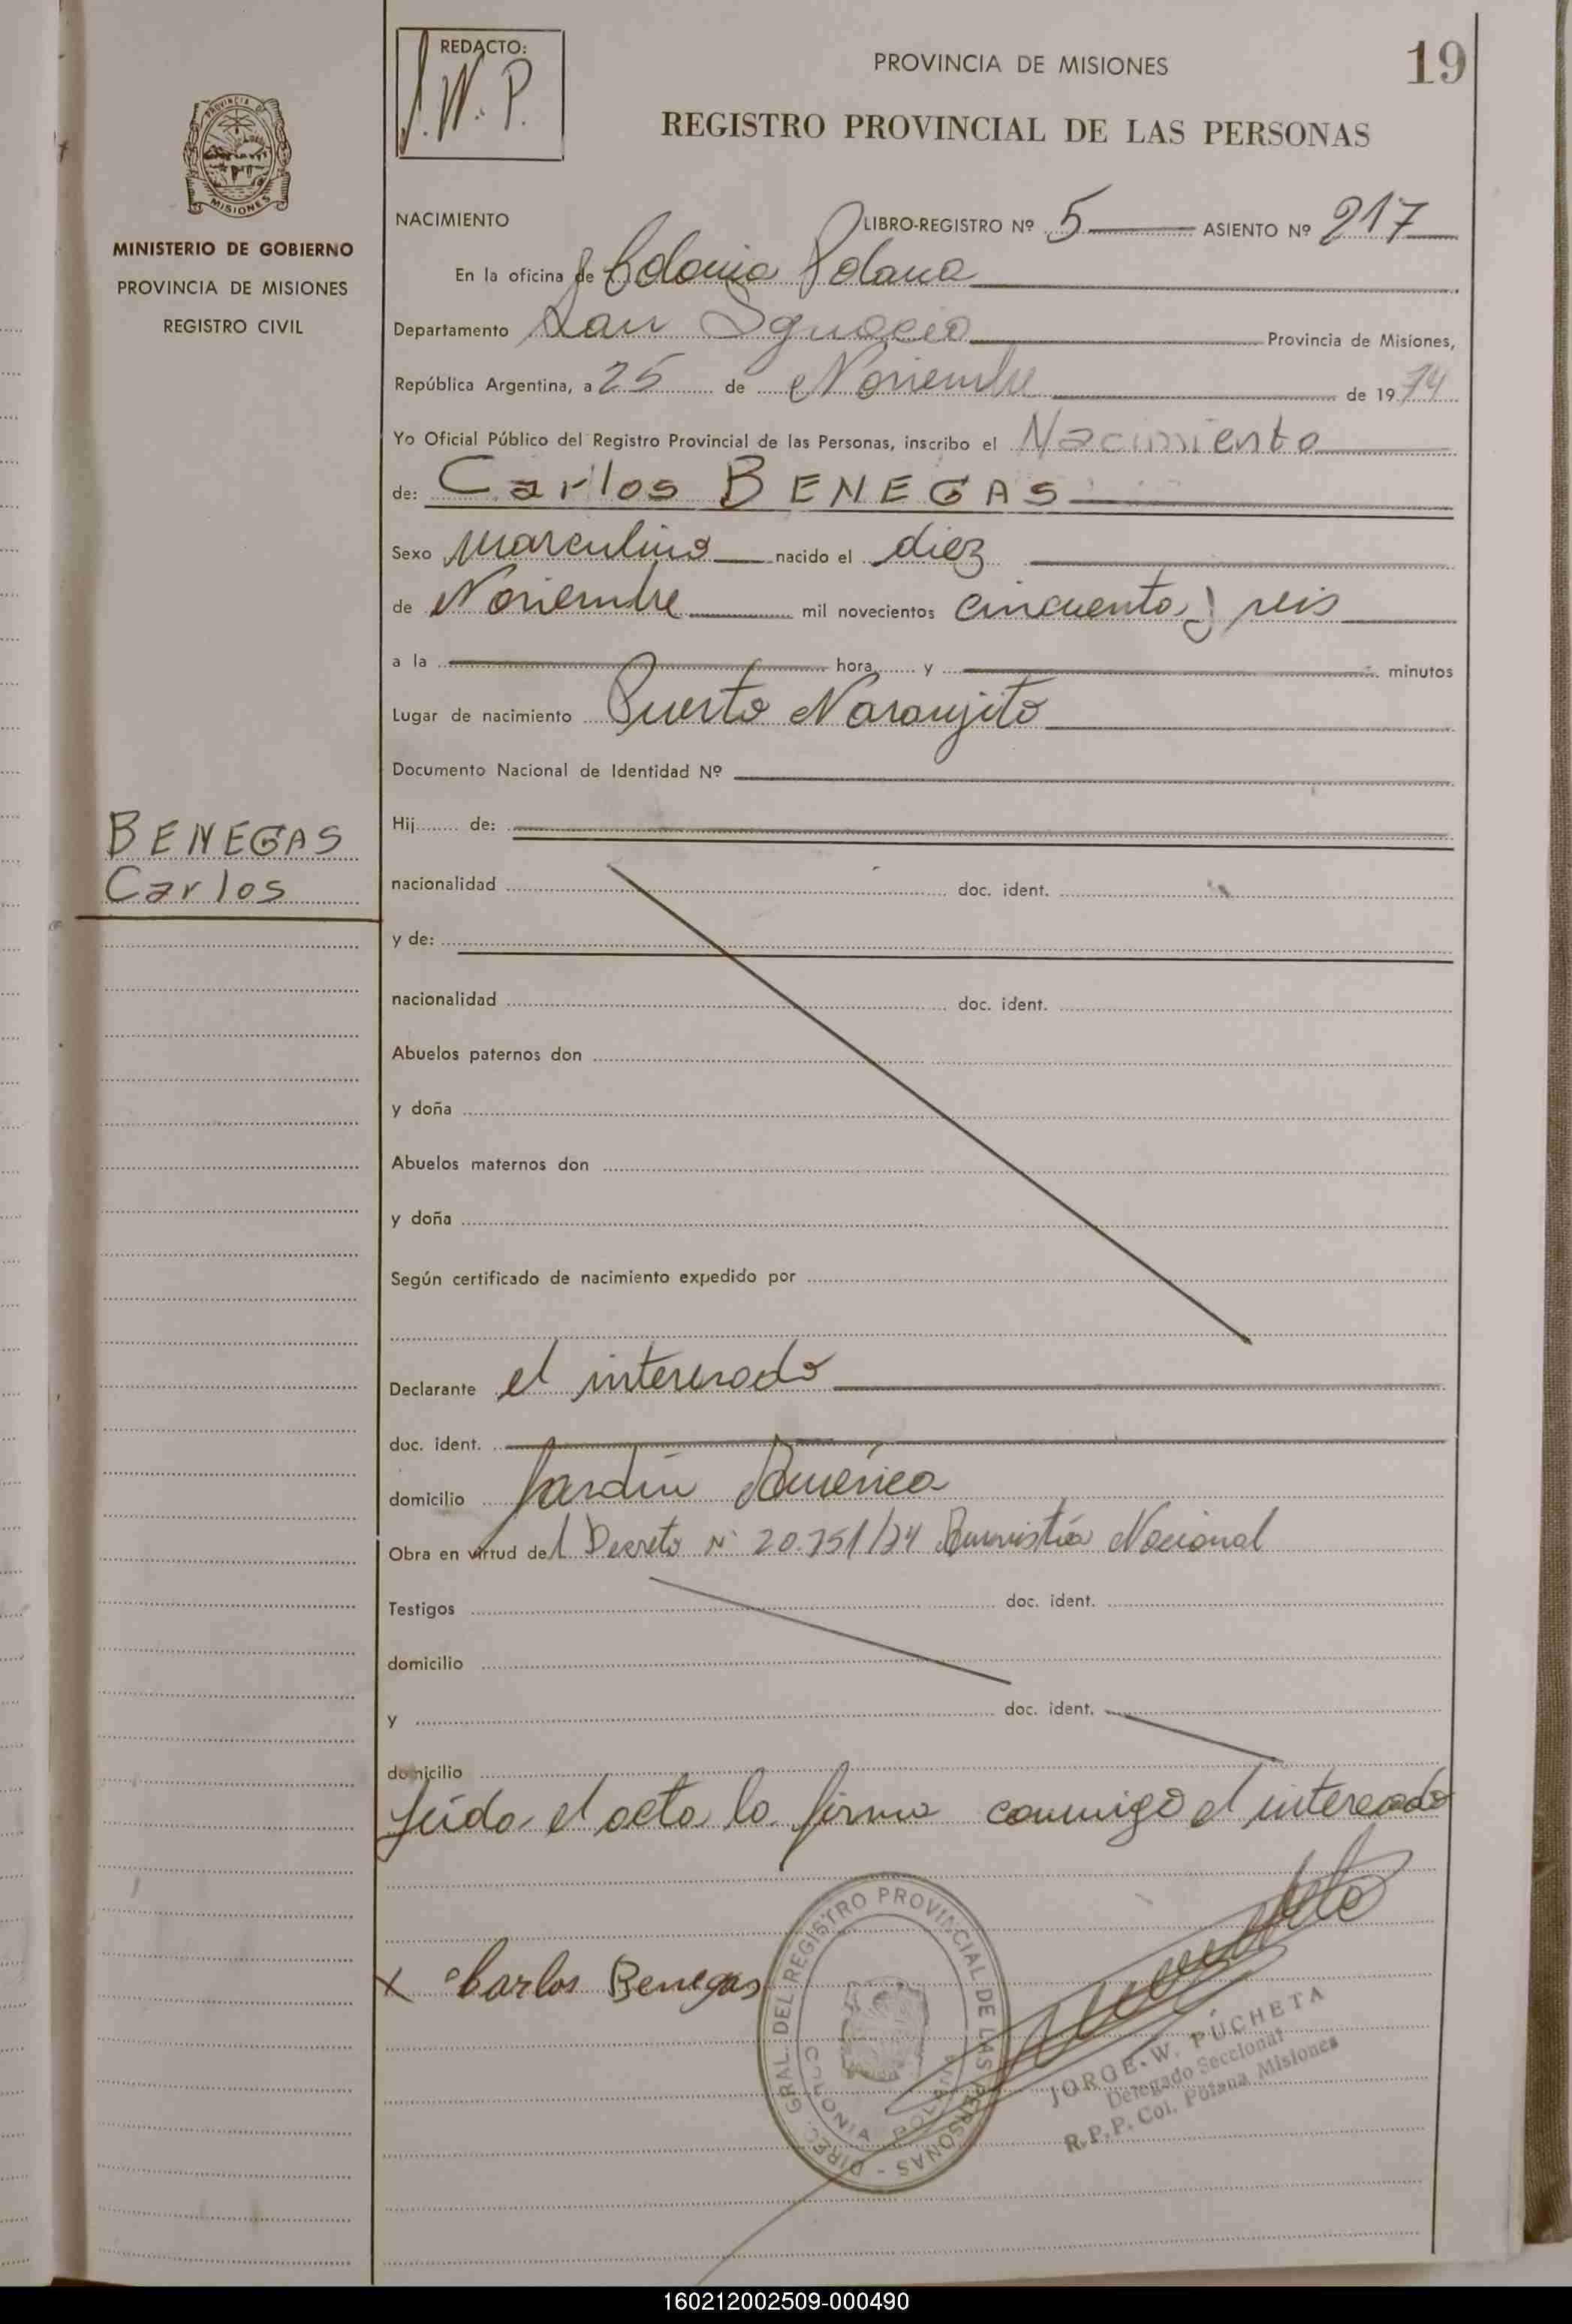 REDACTO:
J.W.P.
PROVINCIA DE MISIONES
19
REGISTRO PROVINCIAL DE LAS PERSONAS
PROVINCIA DE
MISIONES
MINISTERIO DE GOBIERNO
PROVINCIA DE MISIONES
REGISTRO CIVIL
NACIMIENTO LIBRO-REGISTRO Nº 5 ASIENTO Nº 217
En la oficina de Colonia Polana
Departamento San Ignacio Provincia de Misiones,
República Argentina, a 25 de Noviembre de 1974
Yo Oficial Público del Registro Provincial de las Personas, inscribo el Nacimiento
de: Carlos BENEGAS
Sexo masculino nacido el diez
de Noviembre mil novecientos cincuenta y seis
a la hora y minutos
Lugar de nacimiento Puerto Naranjito
Documento Nacional de Identidad Nº
Hij de:
BENEGAS
Carlos
nacionalidad doc. ident.
y de:
nacionalidad doc. ident.
Abuelos paternos don
y doña
Abuelos maternos don
y doña
Según certificado de nacimiento expedido por
Declarante el interesado
doc. ident.
domicilio Jardín América
Obra en virtud del Decreto Nº 20.751/74 Amnistía Nacional
Testigos doc. ident.
domicilio
y doc. ident.
domicilio
Leída el acta la firma conmigo el interesado
x Carlos Benegas
DIREC. GRAL. DEL REGISTRO PROVINCIAL DE LAS PERSONAS -
COLONIA POLANA
JORGE W. PUCHETA
Delegado Seccional
R.P.P. Col. Polana Misiones
160212002509-000490